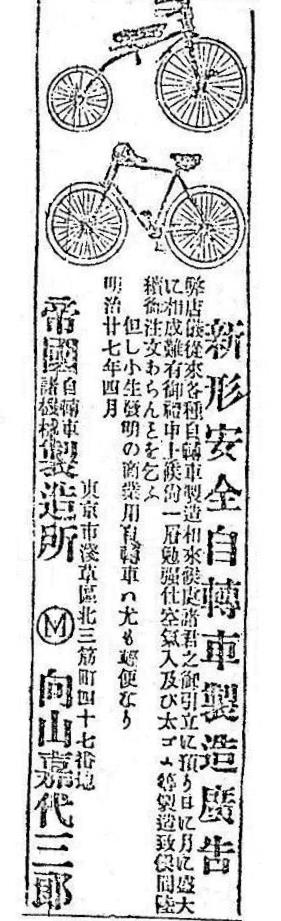 新形安全自轉車製造廣告
弊店儀從來各種自轉車製造相來候處諸君之御引立に預り日に月に盛大
に相成難有御禮申上候尚一層勉强仕空氣入及び太ゴム等製造致候間陸
續御注文あらんとを乞ふ
但し小生發明の商業用自轉車ハ尤も輕便なり
明治廿七年四月
東京市淺草區北三筋町四十七番地
帝國自轉車諸機械製造所 Ⓜ 向山嘉代三郎